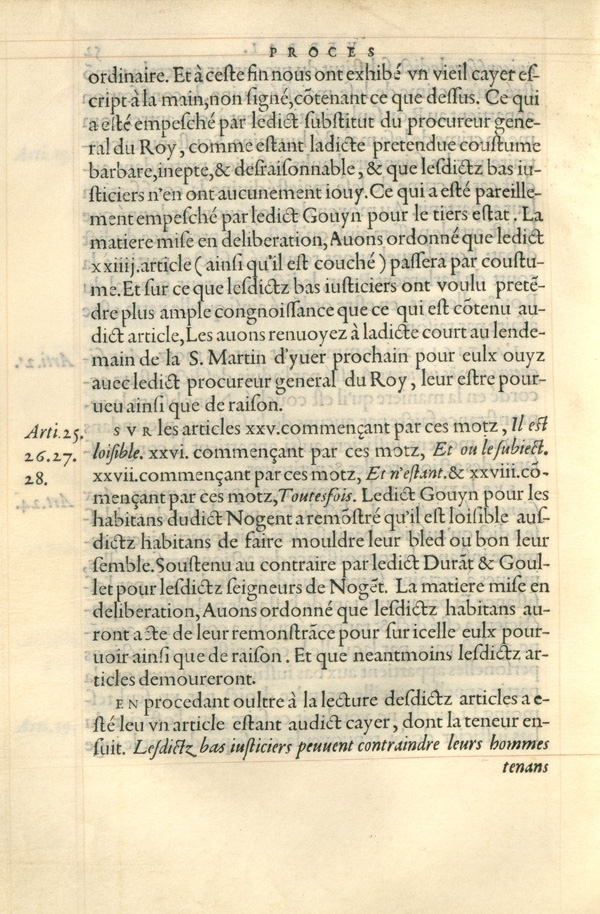 PROCES
ordinaire. Et à ceſte fin nous ont exhibé vn vieil cayer eſ-
cript à la main, non ſigné, cõtenant ce que deſſus. Ce qui
a eſté empeſché par ledict ſubſtitut du procureur gene-
ral du Roy, comme eſtant ladicte pretendue couſtume
barbare, inepte, & deſraiſonnable, & que leſdictz bas iu-
ſticiers n'en ont aucunement iouy. Ce qui a eſté pareille-
ment empeſché par ledict Gouyn pour le tiers eſtat. La
matiere miſe en deliberation, Auons ordonné que ledict
xxiiij. article ( ainſi qu'il eſt couché ) paſſera par couſtu-
me. Et ſur ce que leſdictz bas iuſticiers ont voulu pretẽ-
dre plus ample congnoiſſance que ce qui eſt cõtenu au-
dict article, Les auons renuoyez à ladicte court au lende-
main de la S. Martin d'yuer prochain pour eulx ouyz
auec ledict procureur general du Roy, leur eſtre pour-
ueu ainſi que de raiſon.
Arti. 25. SVR les articles xxv. commençant par ces motz, Il eſt
26. 27. loiſible. xxvi. commençant par ces motz, Et ou le ſubiect.
28. xxvii. commençant par ces motz, Et n'eſtant. & xxviii. cõ-
mençant par ces motz, Toutesfois. Ledict Gouyn pour les
habitans dudict Nogent a remõſtré qu'il eſt loiſible auſ-
dictz habitans de faire mouldre leur bled ou bon leur
ſemble. Souſtenu au contraire par ledict Durãt & Goul-
let pour leſdictz ſeigneurs de Nogẽt. La matiere miſe en
deliberation, Auons ordonné que leſdictz habitans au-
ront acte de leur remonſtrãce pour ſur icelle eulx pour-
uoir ainſi que de raiſon. Et que neantmoins leſdictz ar-
ticles demoureront.
EN procedant oultre à la lecture deſdictz articles a e-
ſté leu vn article eſtant audict cayer, dont la teneur en-
ſuit. Leſdictz bas iuſticiers peuuent contraindre leurs hommes
tenans